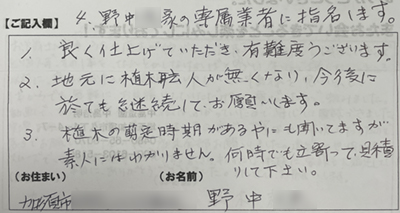 【ご記入欄】 4. 野中 家の専属業者に指名します。
1. 良く仕上げていただき、有難度うございます。
2. 地元に植木職人が無くなり、今後に
於ても継続して、お願いします。
3. 植木の剪定時期があるやにも聞いてますが
素人にはわかりません。何時でも立寄って、見積
りして下さい。
(お住まい) (お名前)
加須市 野中